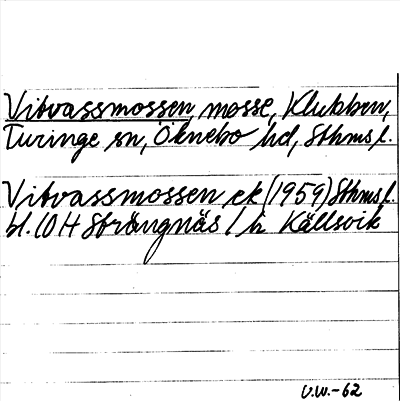 Vitvassmossen, mosse, Klubben,
Turinge sn, Öknebo hd, Sthms l.
Vitvassmossen ek (1959) Sthms l.
bl. 10H Strängnäs / h Källsvik
V.W.-62